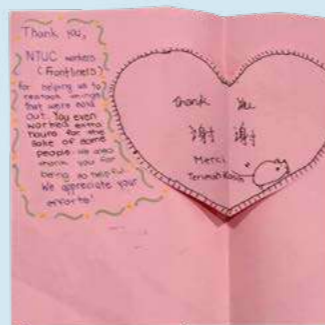 Thank you,
NTUC workers
(Frontliners)
for helping us to
restock things
that were sold
out. You even
worked extra
hours for the
sake of some
people. We also
thank you for
being so helpful.
We appreciate your
efforts!
Thank You
谢谢
Merci
Terimah Kasih